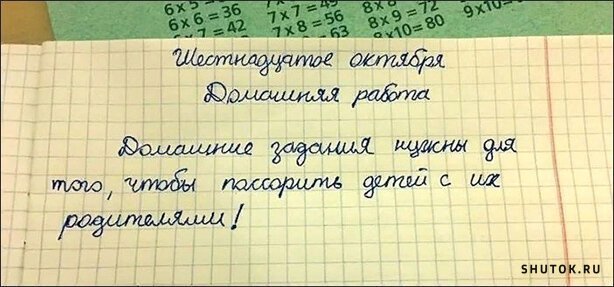 6x5=30
6x6=36
6x7=42
7x7=49
7x8=56
7x9=63
8x8=64
8x9=72
8x10=80
9x10=90
Шестнадцатое октября
Домашняя работа
Домашние задания нужны для
того, чтобы поссорить детей с их
родителями!
SHUTOK.RU